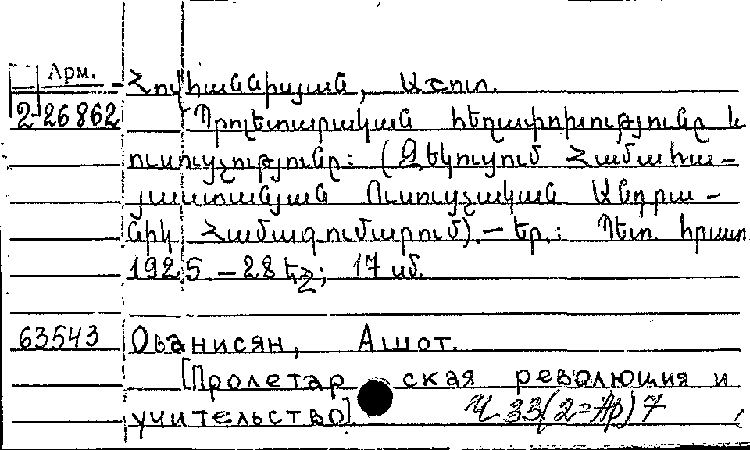 Арм.
Հովհաննիսյան, Աշոտ.
2-26862 Պրոլետարական հեղափոխությունը և
ուսուչությունը: (Զեկուցում Համահա-
յաստանյան Ուսուցչական Անդրա-
նիկ Համագումարում).- Եր.: Պետ. հրատ
1925.-28 եջ; 17 սմ.
63543 Ованисян, Ашот.
[Пролетар ская революция и
учительство]. Ч 33(2=Ар)7